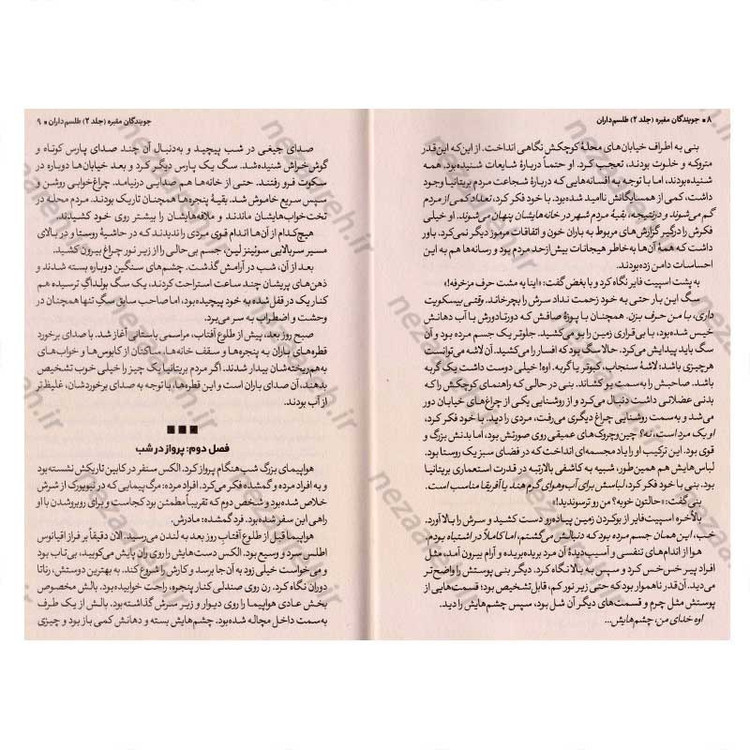 ۸ ■ جویندگان مقبره (جلد ۲) طلسم‌داران
بنی به اطراف خیابان‌های محلهٔ کوچکش نگاهی انداخت. از این‌که این‌قدر
متروکه و خلوت بودند، تعجب کرد. او حتماً دربارهٔ شایعات شنیده‌بود. همه
شنیده‌بودند، اما با توجه به افسانه‌هایی که دربارهٔ شجاعت مردم بریتانیا وجود
داشت، کمی از همسایگانش ناامید شده‌بود. با خود فکر کرد، تعداد کمی از مردم
گم می‌شوند و درنتیجه، بقیهٔ مردم شهر در خانه‌هایشان پنهان می‌شوند. او خیلی
فکرش را درگیر گزارش‌های مربوط به باران خون و اتفاقات مرموز دیگر نمی‌کرد. باور
داشت که همهٔ آن‌ها به‌خاطر هیجانات بیش‌ازحد مردم بود و رسانه‌ها هم به این
احساسات دامن زده‌بودند.
به پشت اسپیت فایر نگاه کرد و با بغض گفت: «اینا یه مشت حرف مزخرفه!»
سگ این بار حتی به خود زحمت نداد سرش را بچرخاند. وقتی بیسکویت
داری، با من حرف بزن. همچنان با پوزهٔ صافش که دورتادورش با آب دهانش
خیس شده‌بود، با بی‌قراری زمین را بو می‌کشید. جلوتر یک جسم مرده بود و آن
سگ باید پیدایش می‌کرد. حالا سگ بود که افسار را می‌کشید. آن لاشه می‌توانست
هرچیزی باشد؛ لاشهٔ سنجاب، کبوتر یا گربه. اوه! خیلی دوست داشت یک گربه
باشد. صاحبش را به‌سمت بو کشاند. بنی در حالی که راهنمای کوچکش را که
بدنی عضلانی داشت دنبال می‌کرد و از روشنایی یکی از چراغ‌های خیابان دور
می‌شد و به‌سمت روشنایی چراغ دیگری می‌رفت، مردی را دید. با خود فکر کرد،
او یک مرد است، نه؟ چین‌وچروک‌های عمیقی روی صورتش بود، اما بدنش بزرگ و
قوی بود. این ترکیب او را یاد مجسمه‌ای انداخت که در فضای سبز یک روستا بود.
لباس‌هایش هم همین‌طور، شبیه به کاشفی بالارتبه در قدرت استعماری بریتانیا
بود. با خود فکر کرد، لباسش برای آب‌وهوای گرم هند یا آفریقا مناسب است.
بنی گفت: «حالتون خوبه؟ من رو ترسوندید!»
بالأخره اسپیت‌فایر از بو‌کردن زمین پیاده‌رو دست کشید و سرش را بالا آورد.
خب، این همان جسم مرده بود که دنبالش می‌گشتم، اما کاملاً در اشتباه بودم.
هوا از اندام‌های تنفسی و آسیب‌دیدهٔ آن مرد بریده‌بریده و آرام بیرون آمد. مثل
افراد پیر خس‌خس کرد و سپس به بالا نگاه کرد. دیگر بنی پوستش را واضح‌تر
می‌دید. آن‌قدر ناهموار بود که حتی زیر نور کم، قابل تشخیص بود؛ قسمت‌هایی از
پوستش مثل چرم و قسمت‌های دیگر آن شل بود. سپس چشم‌هایش را دید.
اوه خدای من، چشم‌هایش...
جویندگان مقبره (جلد ۲) طلسم‌داران ■ ۹
صدای جیغی در شب پیچید و به‌دنبال آن چند صدای پارس کوتاه و
گوش‌خراش شنیده‌شد. سگ یک پارس دیگر کرد و بعد خیابان‌ها دوباره در
سکوت فرو رفتند. حتی از خانه‌ها هم صدایی درنیامد. چراغ‌خوابی روشن و
سپس سریع خاموش شد. بقیهٔ پنجره‌ها همچنان تاریک بودند. مردم محله در
تخت‌خواب‌هایشان ماندند و ملافه‌هایشان را بیشتر روی خود کشیدند.
هیچ‌کدام از آن‌ها اندام قوی مردی را ندیدند که در حاشیهٔ روستا و در بالای
مسیر سربالایی سوئینز لین، جسم بی‌حالی را از زیر نور چراغ بیرون می‌کشید.
بعد از آن، شب در آرامش گذشت. چشم‌های سنگین دوباره بسته شدند و
ذهن‌های پریشان چند ساعت استراحت کردند. یک سگ بولداگ ترسیده هم
کنار یک در قفل‌شده به خود پیچیده‌بود، اما صاحب سابق سگ تنها همچنان در
وحشت و اضطراب به سر می‌برد.
صبح روز بعد، پیش از طلوع آفتاب، مراسمی باستانی آغاز شد. با صدای برخورد
قطره‌های باران به پنجره‌ها و سقف خانه‌ها، ساکنان از کابوس‌ها و خواب‌های
به‌هم‌ریخته‌شان بیدار شدند. اگر مردم بریتانیا یک چیز را خیلی خوب تشخیص
بدهند، آن صدای باران است و این قطره‌ها، با توجه به صدای برخوردشان، غلیظ‌تر
از آب بودند.
■ ■ ■
فصل دوم: پرواز در شب
هواپیمای بزرگ شب‌هنگام پرواز کرد. الکس سنفر در کابین تاریکش نشسته بود
و به افراد مرده و گمشده فکر می‌کرد. افراد مرده: مرگ‌پیمایی که در نیویورک از شرش
خلاص شده‌بود و شخص دوم که تقریباً مطمئن بود کجاست و برای روبروشدن با او
راهی این سفر شده‌بود. فرد گمشده: مادرش.
هواپیما قبل از طلوع آفتاب روز بعد به لندن می‌رسید. الان دقیقاً بر فراز اقیانوس
اطلس سرد و وسیع بود. الکس دست‌هایش را روی ران پایش می‌کوبید، بی‌تاب بود
و می‌خواست خیلی زود به آن‌جا برسد و کارش را شروع کند. به بهترین دوستش، رناتا
دوران نگاه کرد. رن روی صندلی کنار پنجره، راحت خوابیده‌بود. بالش مخصوص
بخش عادی هواپیما را روی دیوار و زیر سرش گذاشته‌بود. بالش از یک طرف
به‌سمت داخل مچاله شده‌بود. چشم‌هایش بسته و دهانش کمی باز بود و چیزی
nezaareh.ir